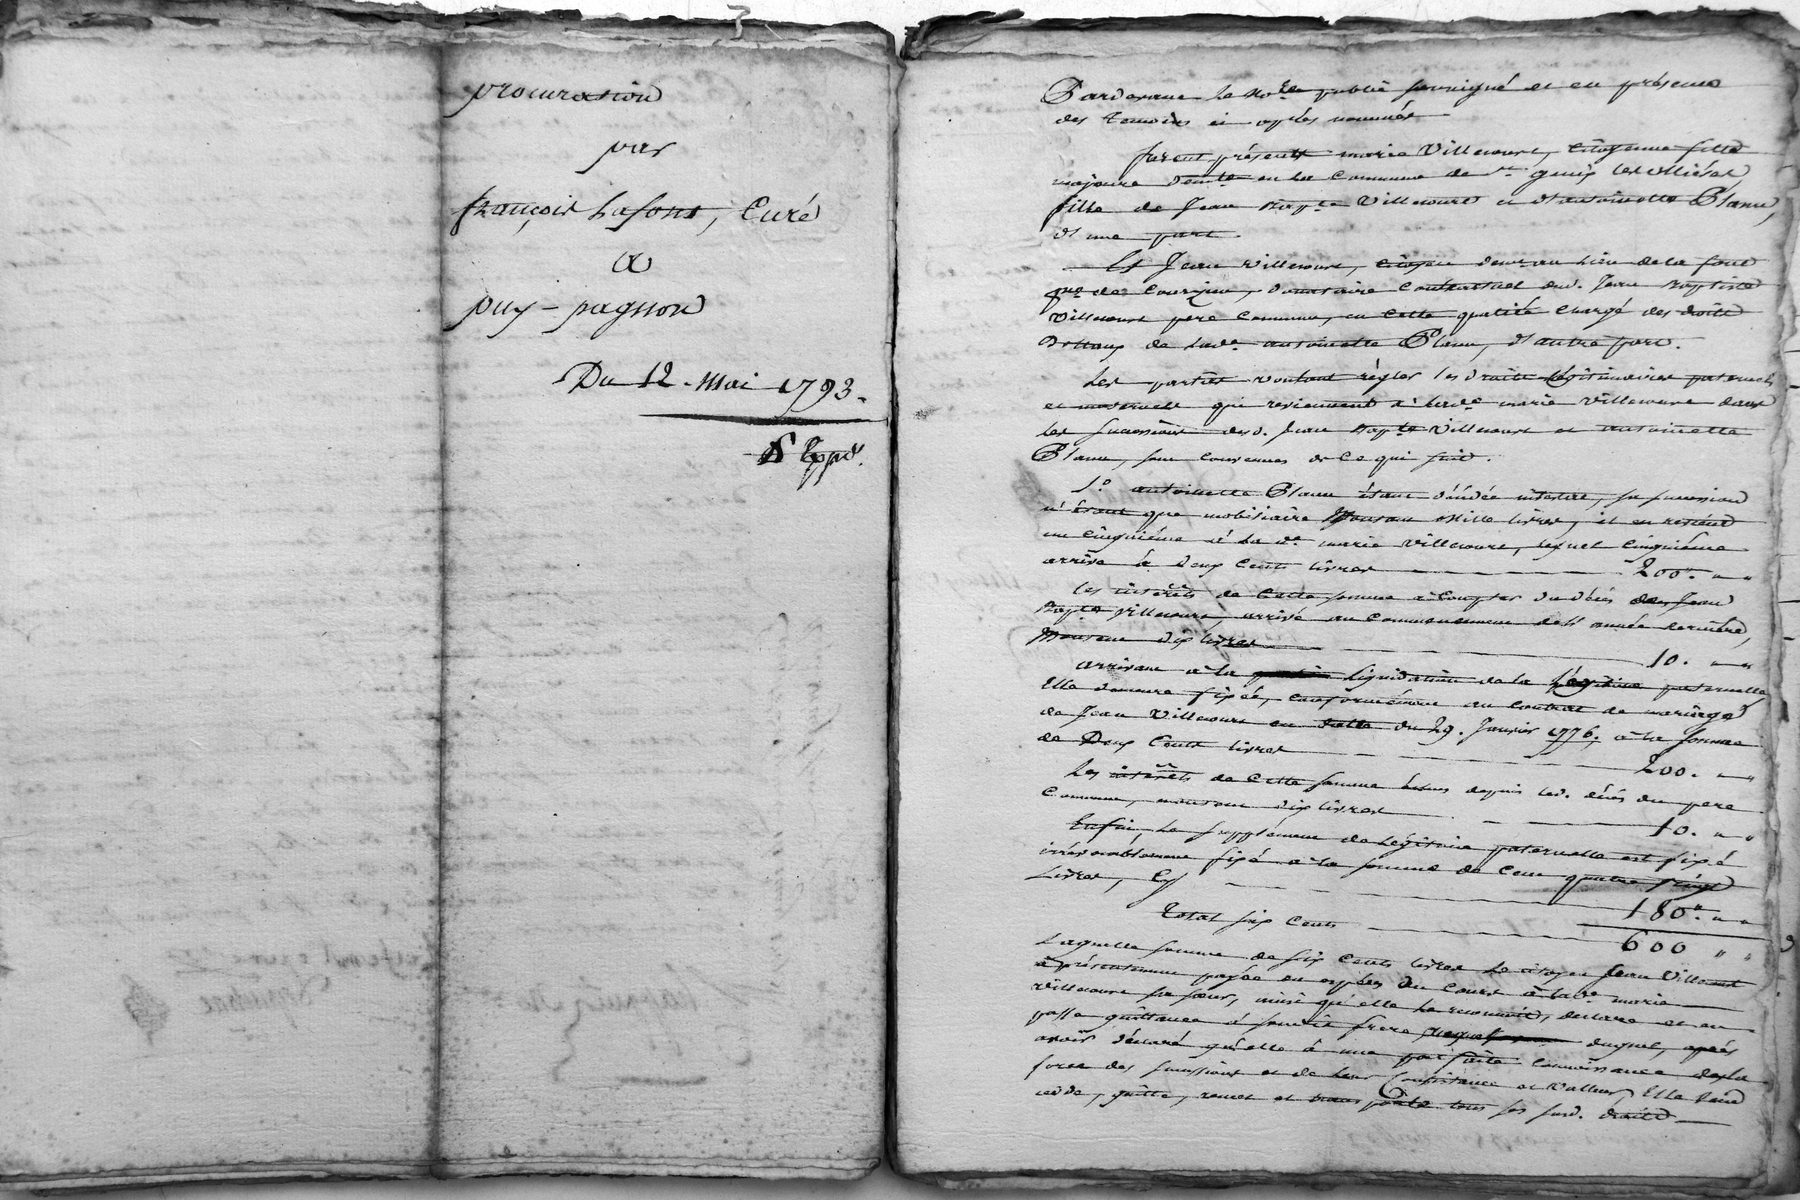 procuration
par
françois Lafont, Curé
a
puy-pagnon
Du 12. Mai 1793.
Expd.
Pardevant le No.re public soussigné et en présence
des temoins ci après nommés
furent présents marie Villecourt, Citoyenne fille
majeure demte en la Commune de St genix les
fille de Jean Bapte Villecourt et d'antoinette Blanc,
d'une part.
Et Jean Villecourt, Citoyen demt au Lieu de la font
psse de donataire Contractuel dud. Jean Baptiste
Villecourt pere Commun, en cette qualité Chargé des droits
de Lade antoinette Blanc, d'autre part.
Les parties voulant régler les droits Légitimaires paternels
et maternels qui reviennent à Lade marie Villecourt dans
les successions desd. Jean Bapte Villecourt et antoinette
Blanc, sont Convenues de Ce qui suit.
1.o antoinette Blanc étant décédée intestat, sa succession
n'étant que mobiliaire montant Mille livres, il en revient
un Cinquième à La de marie Villecourt, lequel Cinquième
arrive à Deux Cents livres 200. " "
les intérêts de Cette somme à Compter du décès de Jean
Bapte Villecourt, arrivé au Commencement de l'année dernière,
montent dix livres 10. " "
arrivant à la liquidation de la Légitime paternelle,
Elle demeure fixée, conformément au Contrat de mariage
de Jean Villecourt en datte du 29. Janvier 1776, à la somme
de Deux Cents livres 200. " "
Les intérêts de Cette somme depuis led. décès du pere
Commun, montent dix livres 10. " "
Enfin, Le supplément de Légitime paternelle est fixé
irrévocablement fixé à la somme de Cent quatre vingt
Livres, Cy 180. " "
Total six Cents 600 " "
Laquelle somme de six Cents livres Le citoyen Jean Villecourt
à présentement payée en espèces du Cours à Lade marie
Villecourt sa sœur, ainsi qu'elle Le reconnoit, declare et en
passe quittance à sondit frère duquel, après
avoir déclaré qu'elle à une parfaite Connoissance de la
force des successions et de leur Consistance et valleur, Elle lui
cède, quitte, remet et transporte tous ses susd. droits